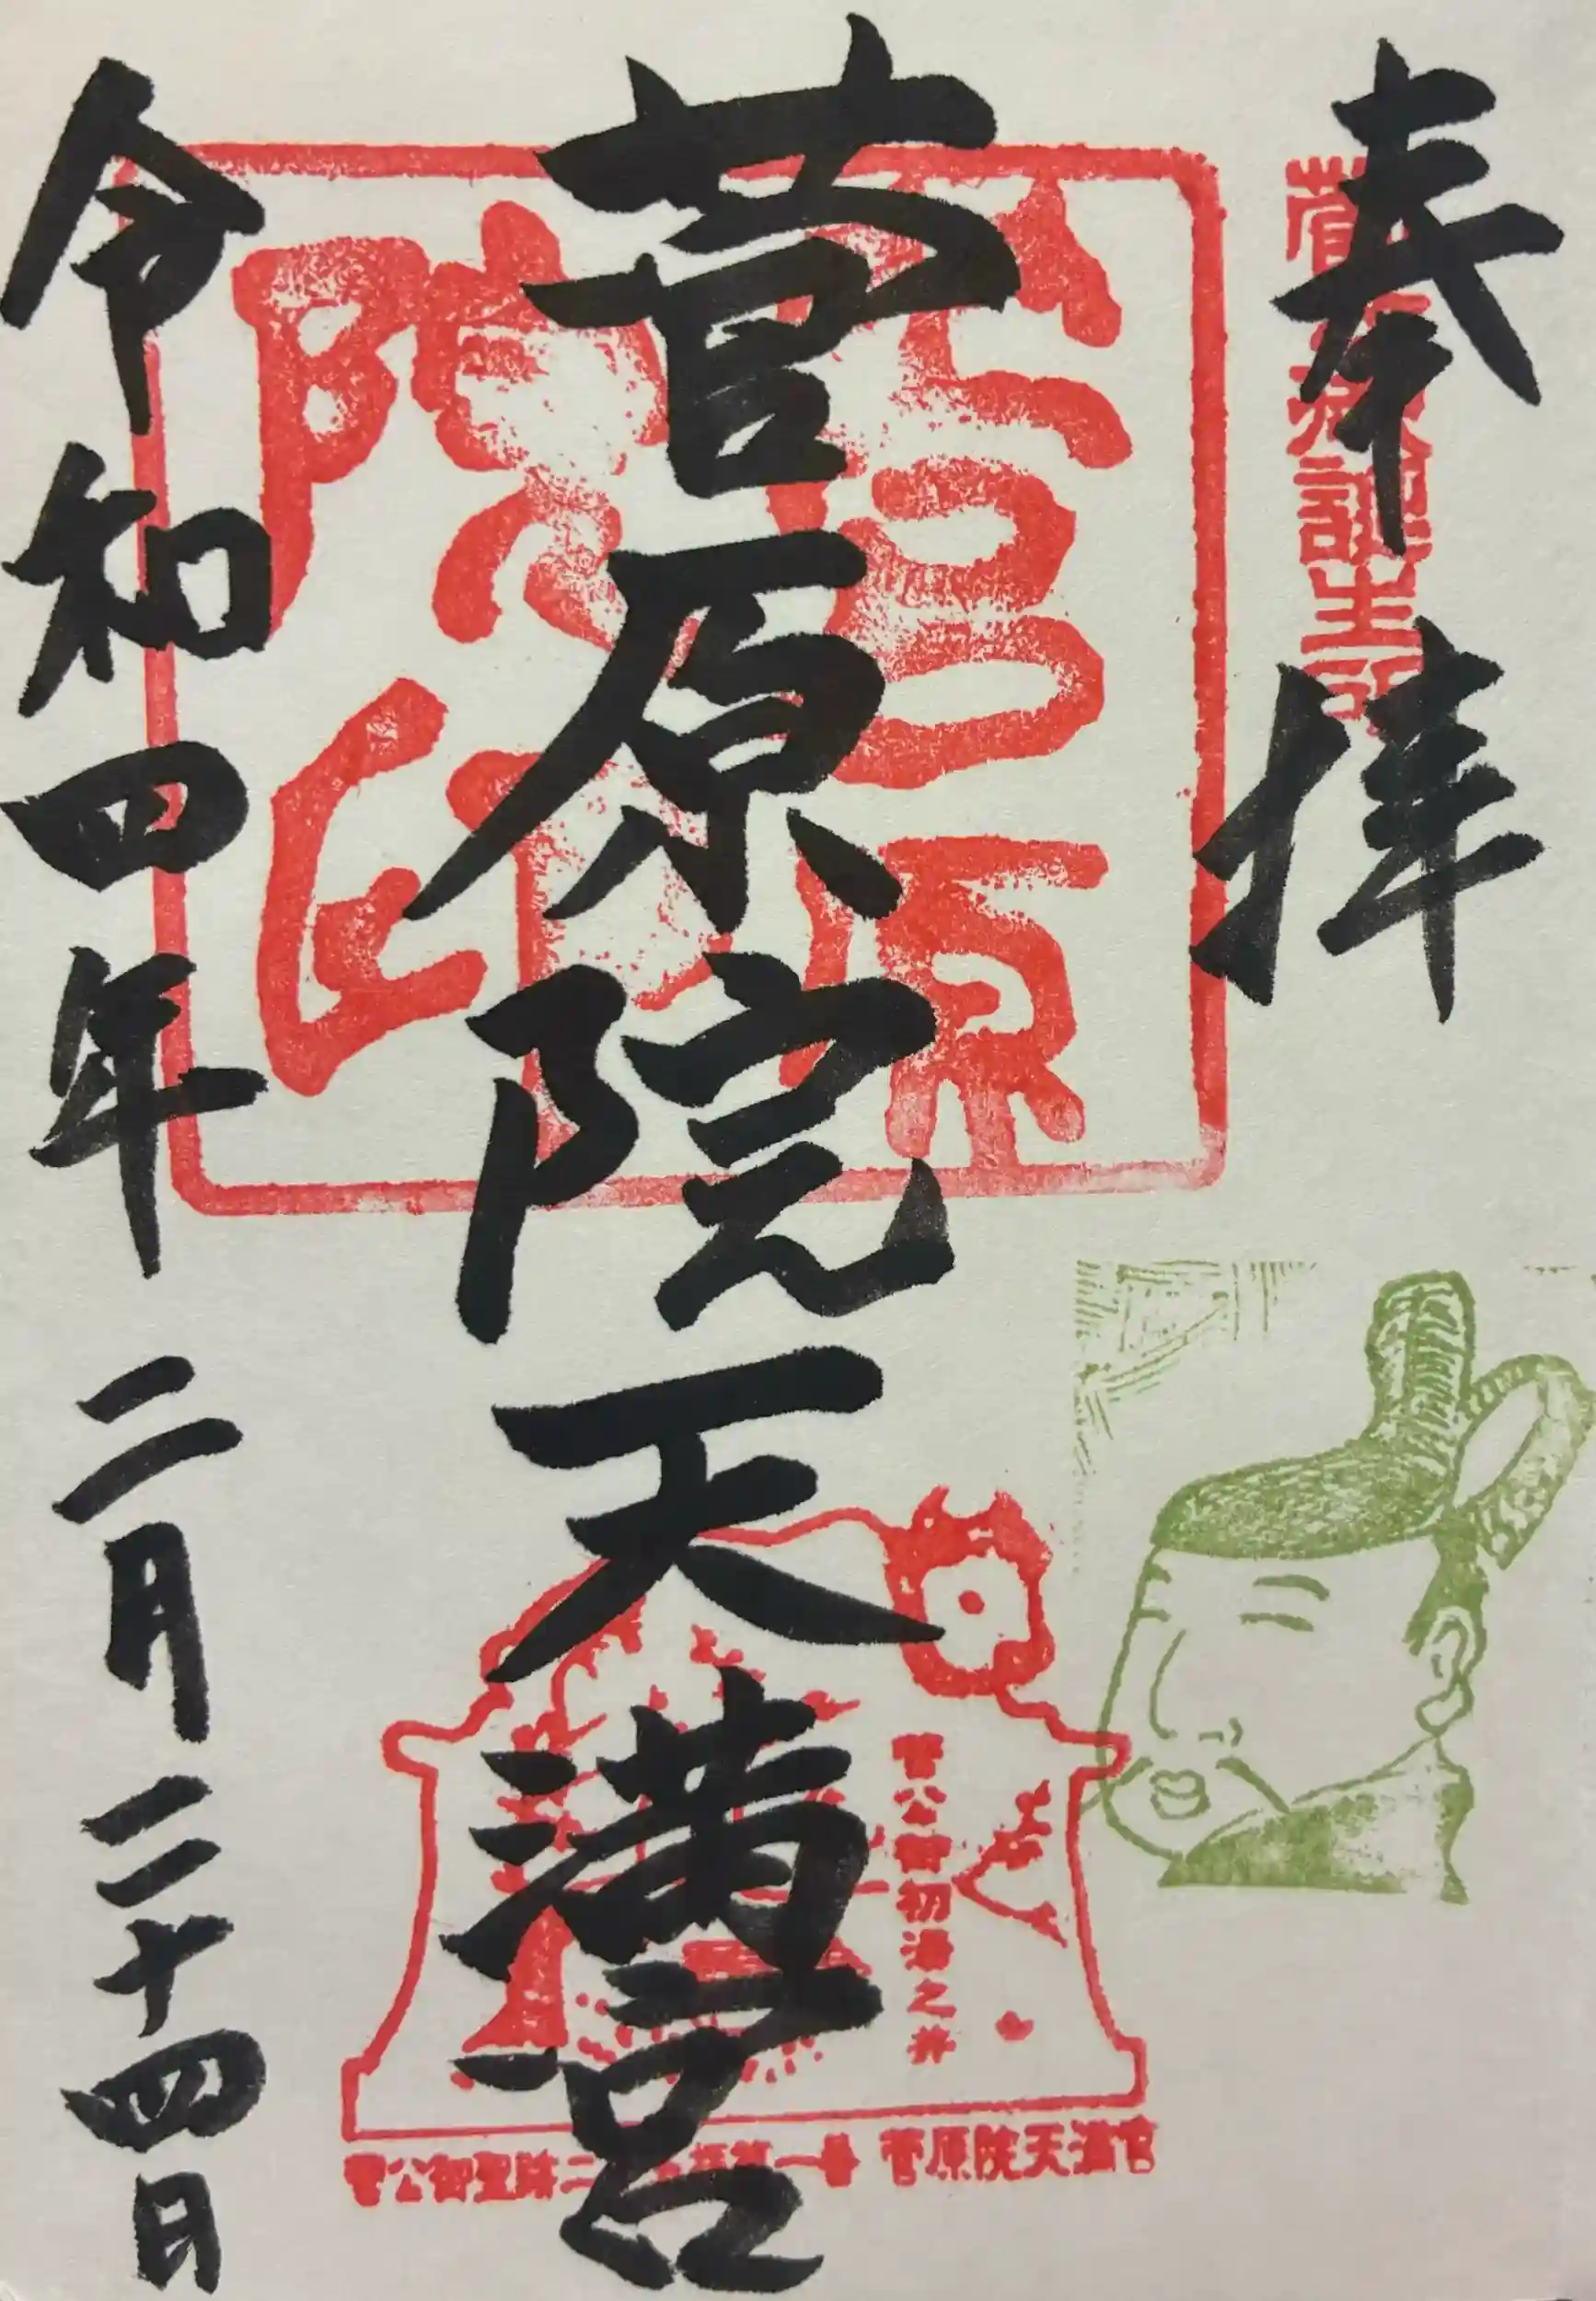 奉拝
菅原院天満宮
令和四年二月二十四日
誕生所
菅公御初湯之井
菅公御聖跡二
第一番 菅原院天満宮